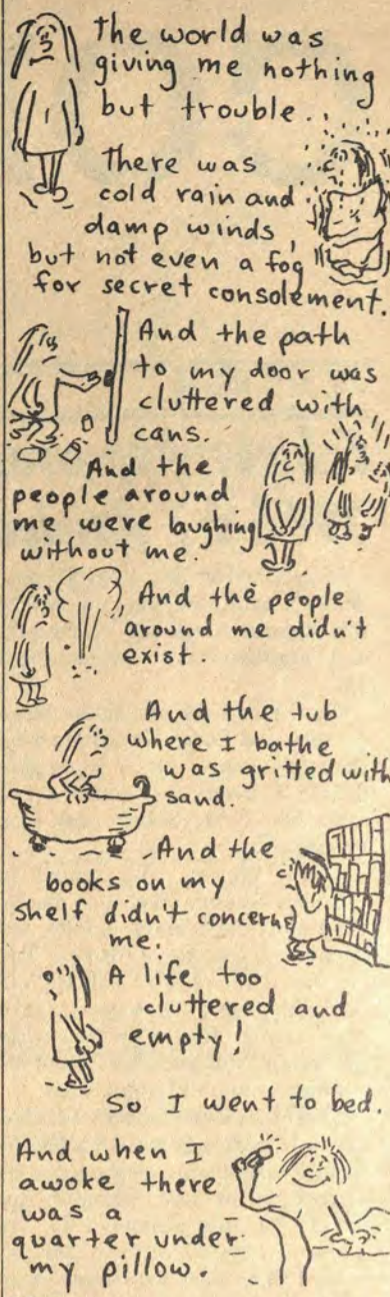 The world was
giving me nothing
but trouble..
There was
cold rain and
damp winds,
but not even a fog
for secret consolement.
And the path
to my door was
cluttered with
cans.
And the
people around
me were laughing
without me.
And the people
around me didn't
exist.
And the tub
where I bathe
was gritted with
sand.
And the
books on my
shelf didn't concern
me.
A life too
cluttered and
empty!
So I went to bed.
And when I
awoke there
was a
quarter under
my pillow.